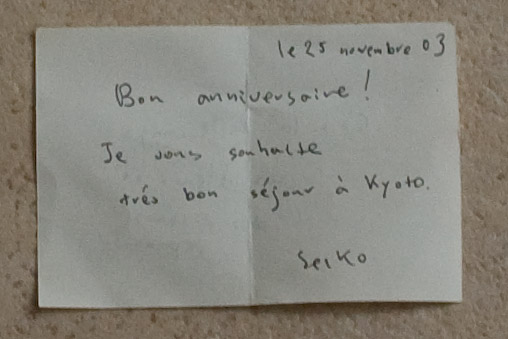 le 25 novembre 03
Bon anniversaire !
Je vous souhaite
trés bon séjour à Kyoto.
Seiko